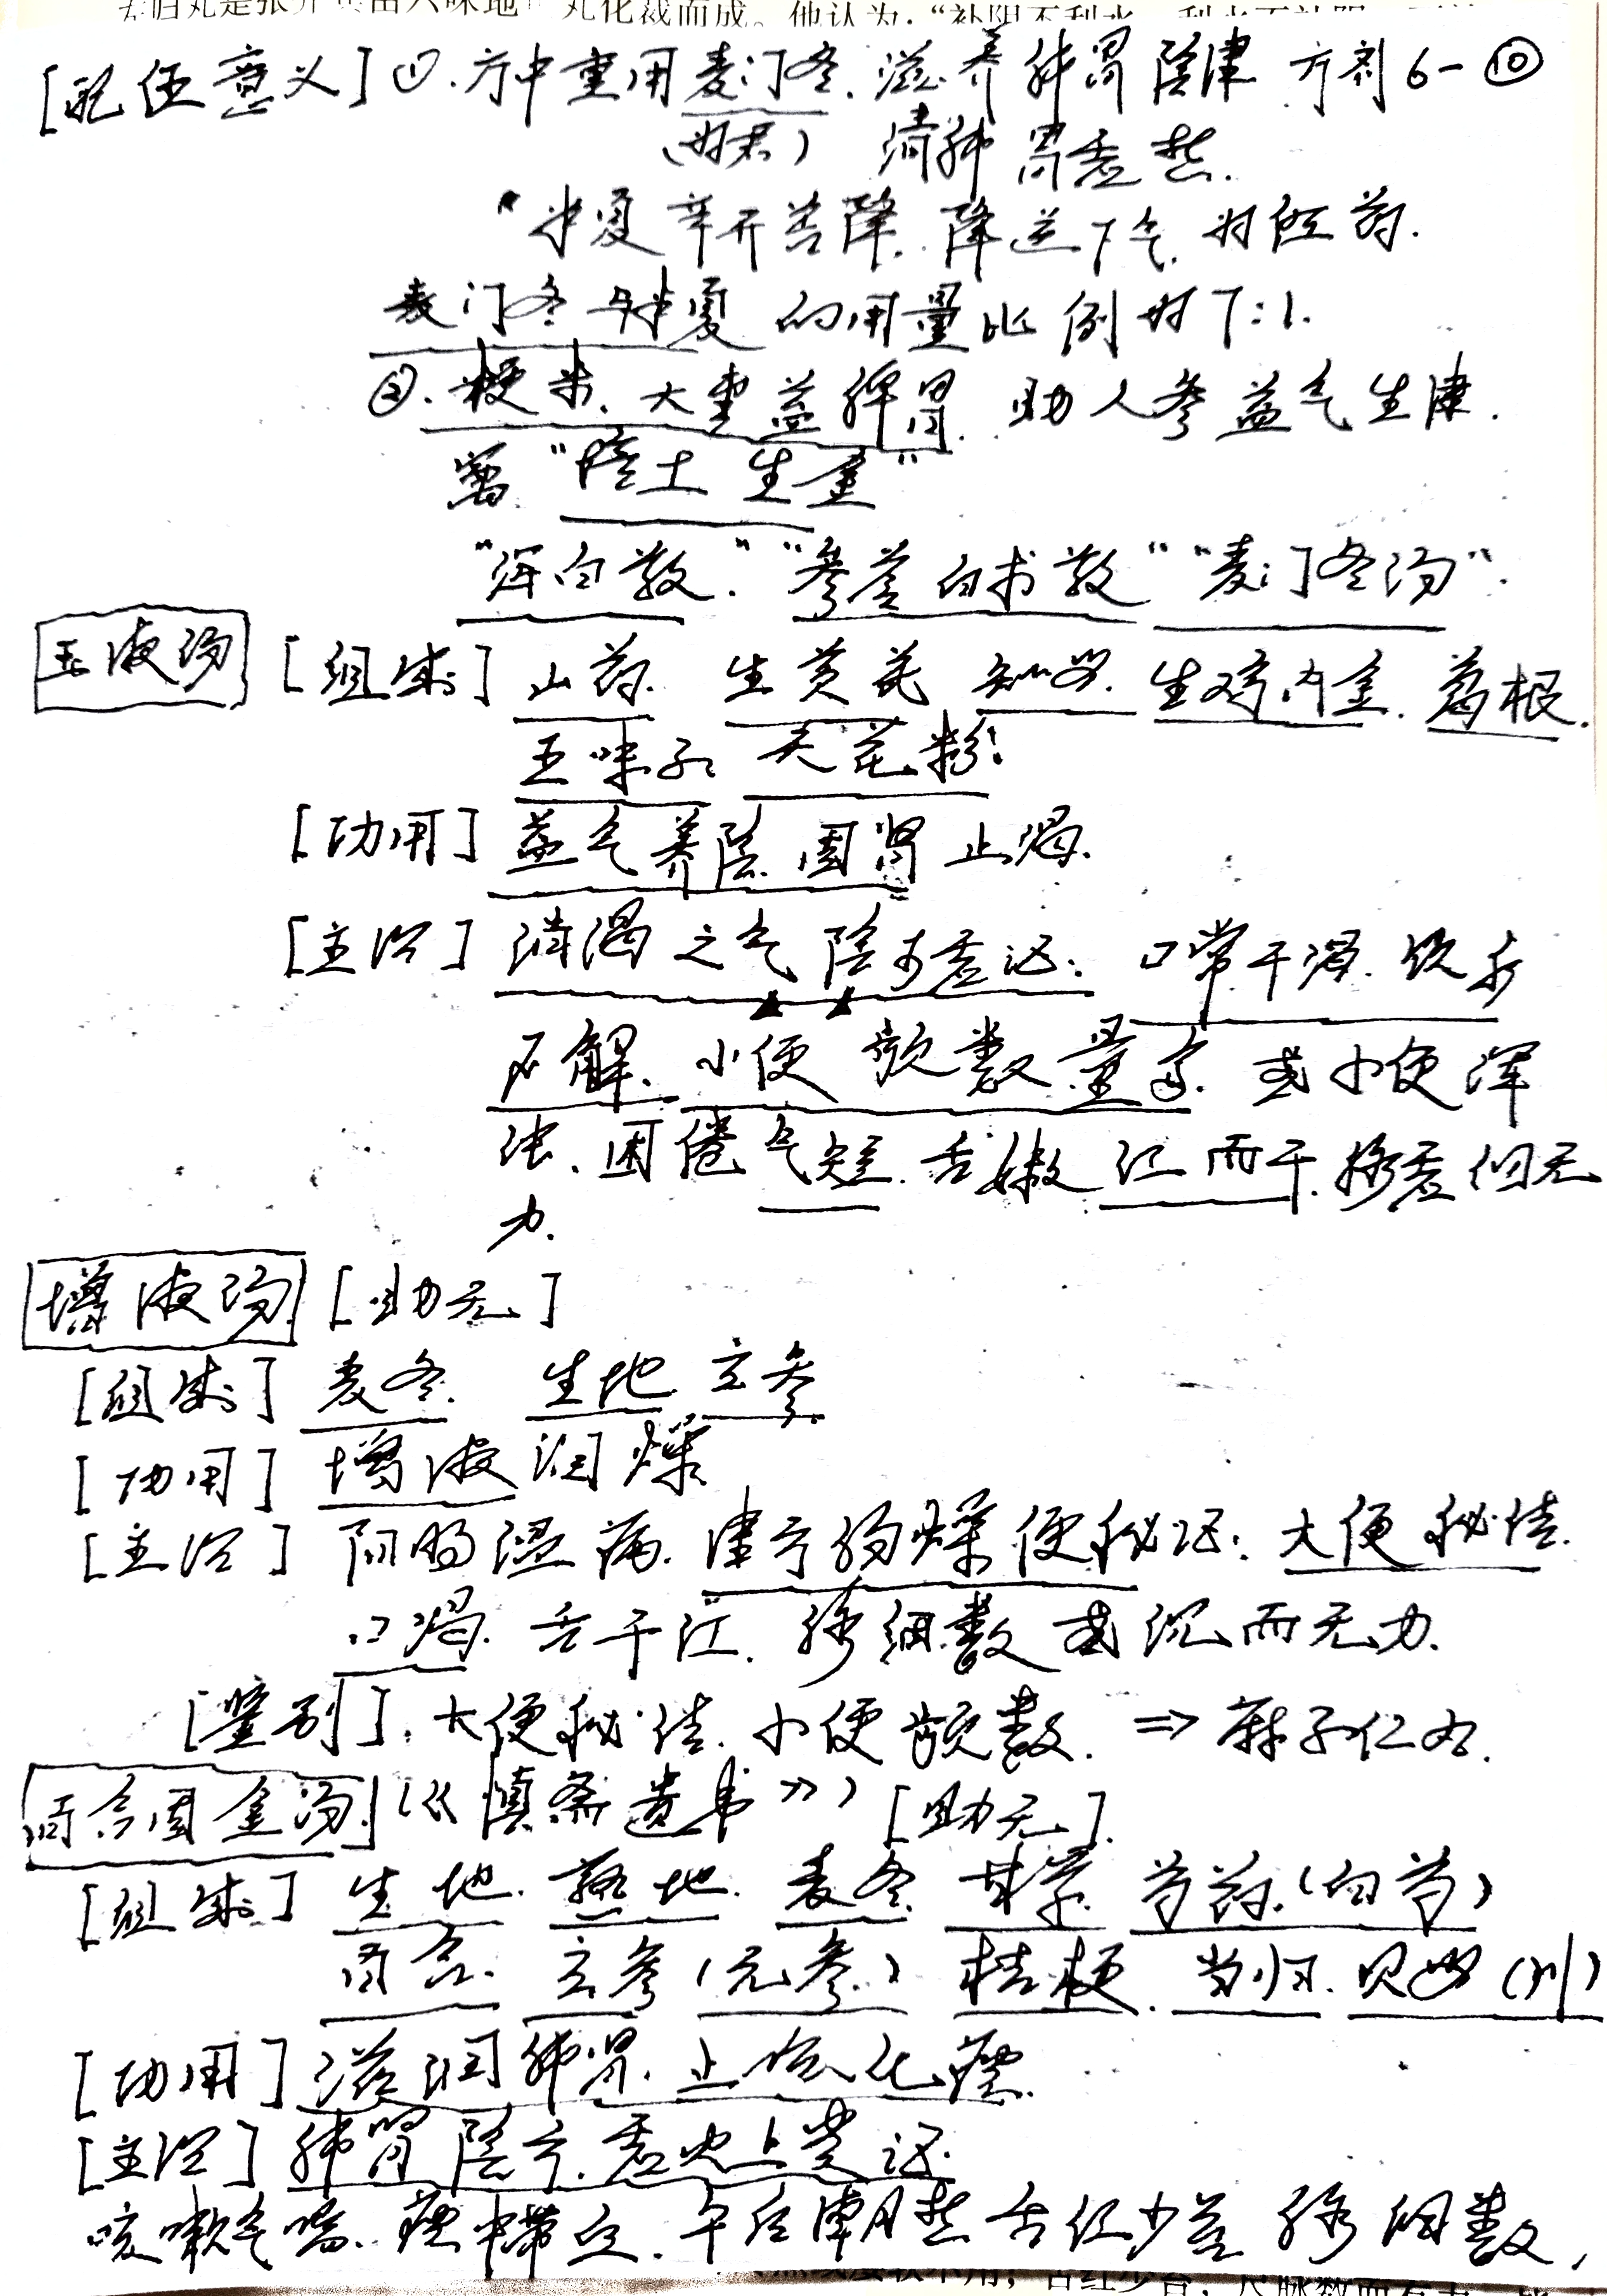 左归丸是张介 由六味地 丸化裁而成。他认为:“补阴不利水,利水不补阴,
[配伍意义] ①.方中重用麦门冬.滋养肺胃阴津 方剂6-⑩
(为君) 清肺胃虚热.
"半夏辛开苦降.降逆下气.为佐药.
麦门冬与半夏的用量比例为7:1.
②.粳米.大枣益脾胃.助人参益气生津.
寓“培土生金”
“泻白散.”“参苓白术散”“麦门冬汤”.
玉液汤 [组成] 山药.生黄芪 知母.生鸡内金.葛根.
五味子 天花粉.
[功用] 益气养阴.固肾止渴.
[主治] 消渴之气阴两虚证:口常干渴.饮水
不解.小便频数量多.或小便浑
浊.困倦气短.舌嫩红而干.脉虚细无
力.
增液汤 [助无]
[组成] 麦冬.生地.玄参
[功用] 增液润燥
[主治] 阳明温病.津亏肠燥便秘证:大便秘结.
口渴.舌干红.脉细数或沉而无力.
[鉴别].大便秘结.小便频数.⇒麻子仁丸.
百合固金汤 (《慎斋遗书》) [助无].
[组成] 生地.熟地.麦冬.甘草.芍药.(白芍)
百合.玄参(元参.) 桔梗.当归.贝母(川)
[功用] 滋润肺肾.止咳化痰.
[主治] 肺肾阴亏.虚火上炎证.
咳嗽气喘.痰中带血.午后潮热 舌红少苔 脉细数,